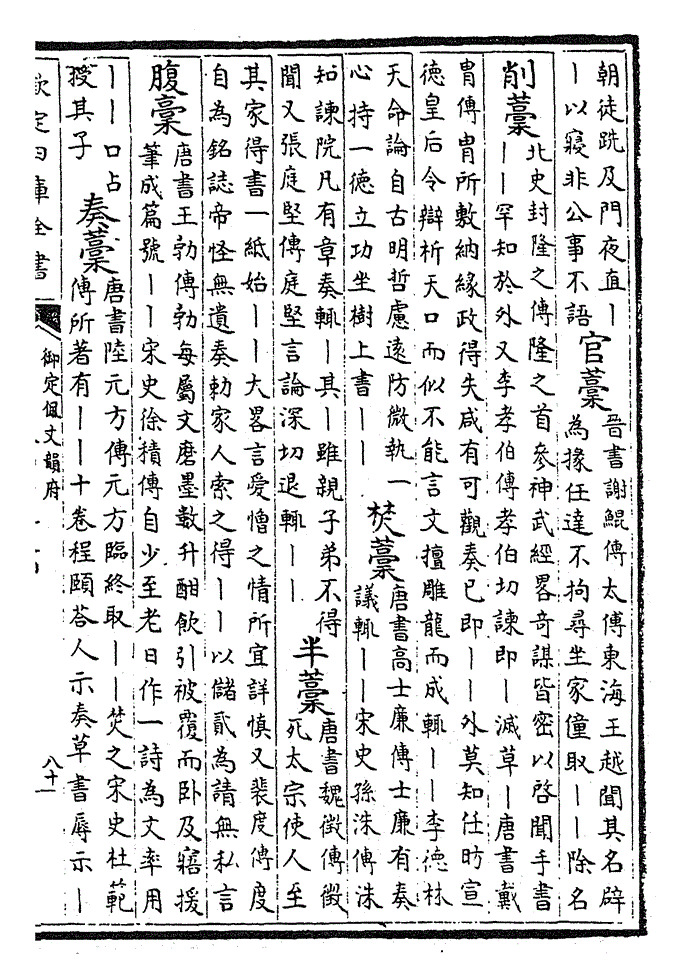 朝徒跣及門夜直｜
｜以寢非公事不語
官藁
晉書謝鯤傳太傅東海王越聞其名辟
為掾任達不拘尋坐家僮取｜｜除名
削藁
北史封隆之傳隆之首參神武經畧奇謀皆密以啓聞手書
｜｜罕知於外又李孝伯傳孝伯切諫即｜滅草｜唐書戴
胄傳胄所敷納緣政得失咸有可觀奏已即｜｜外莫知任昉宣
德皇后令辯析天口而似不能言文擅雕龍而成輒｜｜李德林
天命論自古明哲慮遠防微執一
心持一德立功坐樹上書｜｜
焚藁
唐書高士廉傳士廉有奏
議輒｜｜宋史孫洙傳洙
知諫院凡有章奏輒｜其｜雖親子弟不得
聞又張庭堅傳庭堅言論深切退輒｜｜
半藁
唐書魏徵傳徵
死太宗使人至
其家得書一紙始｜｜大畧言愛憎之情所宜詳慎又裴度傳度
自為銘誌帝怪無遺奏勅家人索之得｜｜以儲貳為請無私言
腹藁
唐書王勃傳勃每屬文磨墨數升酣飲引被覆而卧及寤援
筆成篇號｜｜宋史徐積傳自少至老日作一詩為文率用
｜｜口占
授其子
奏藁
唐書陸元方傳元方臨終取｜｜焚之宋史杜範
傳所著有｜｜十卷程頤荅人示奏草書辱示｜
欽定四庫全書
御定佩文韻府
八十一